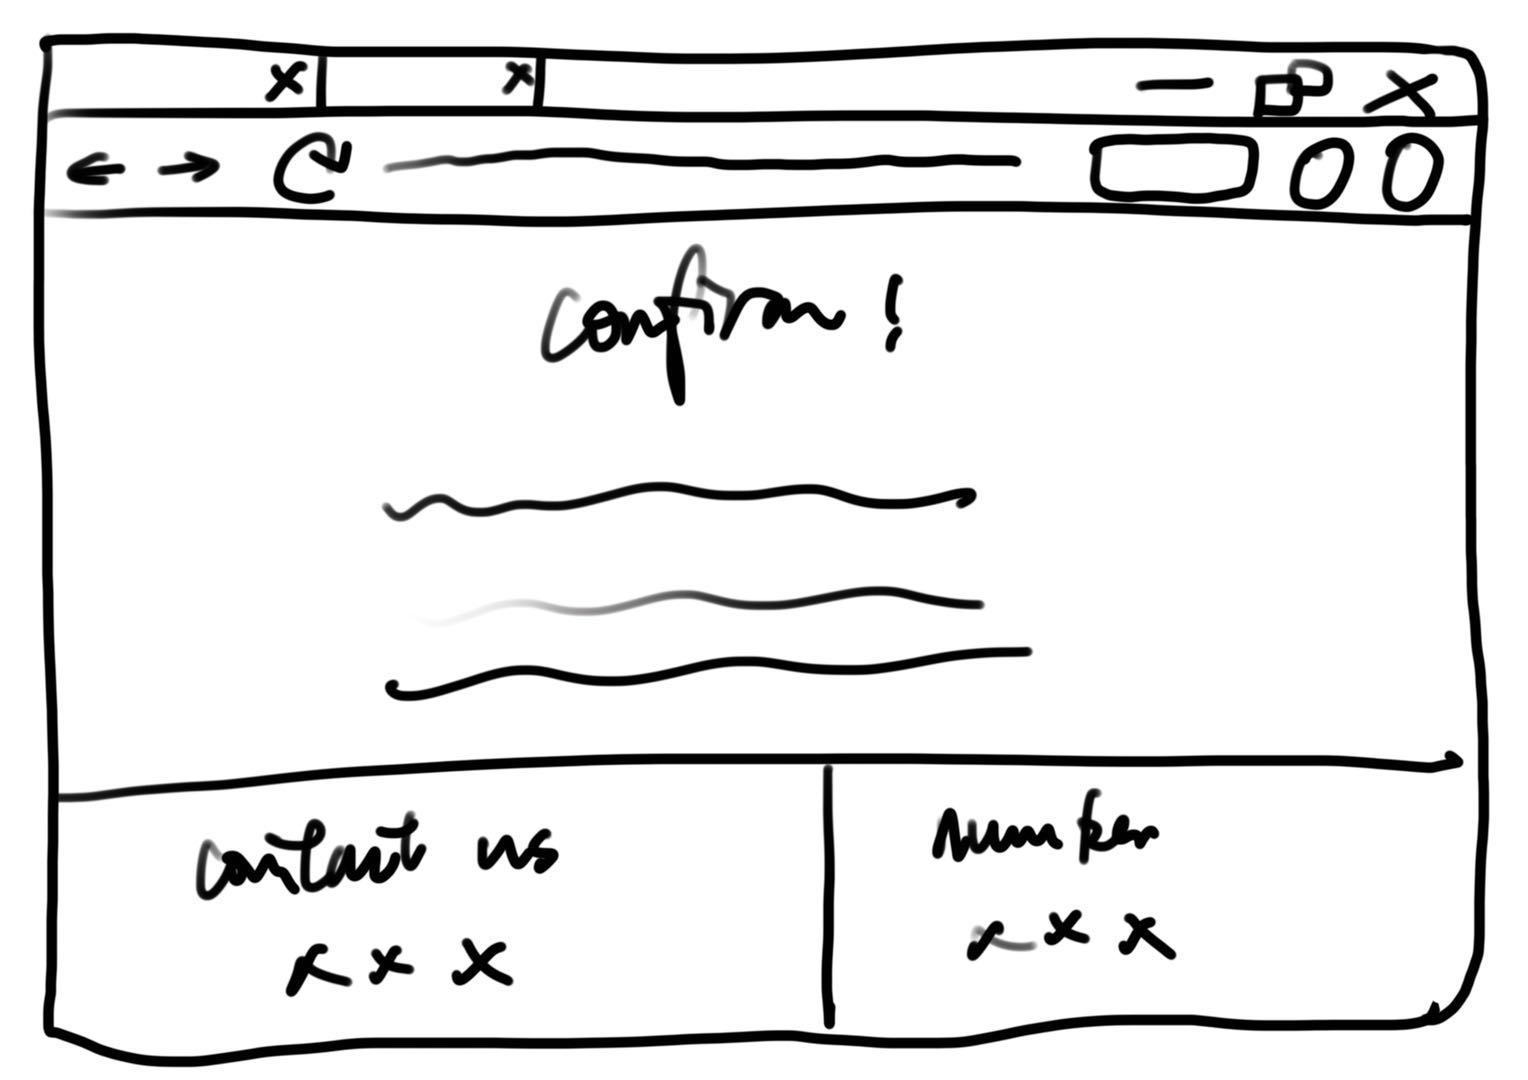 confirm!
contact us
x x x
number
x x x